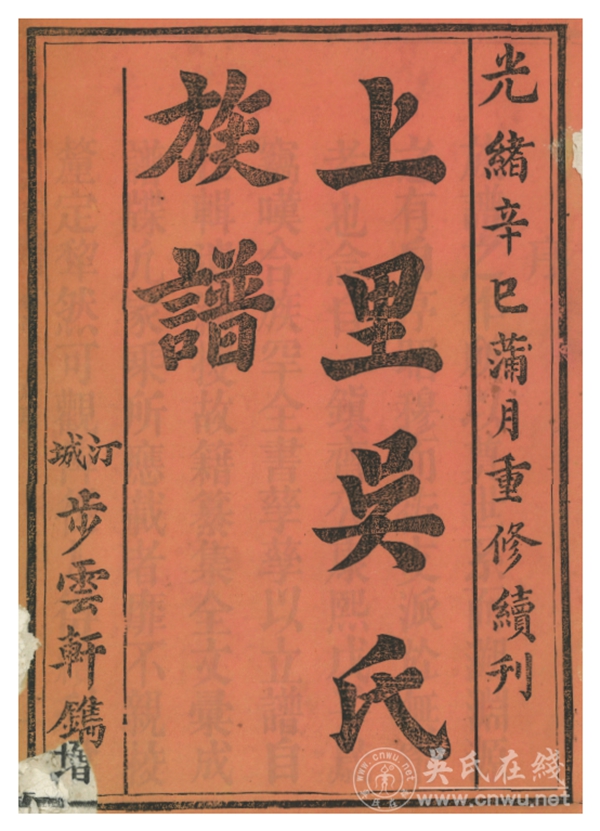 光緒辛巳蒲月重修續刊
上里吳氏
族譜
汀城步雲軒鐫
吳氏在线
www.cnwu.net